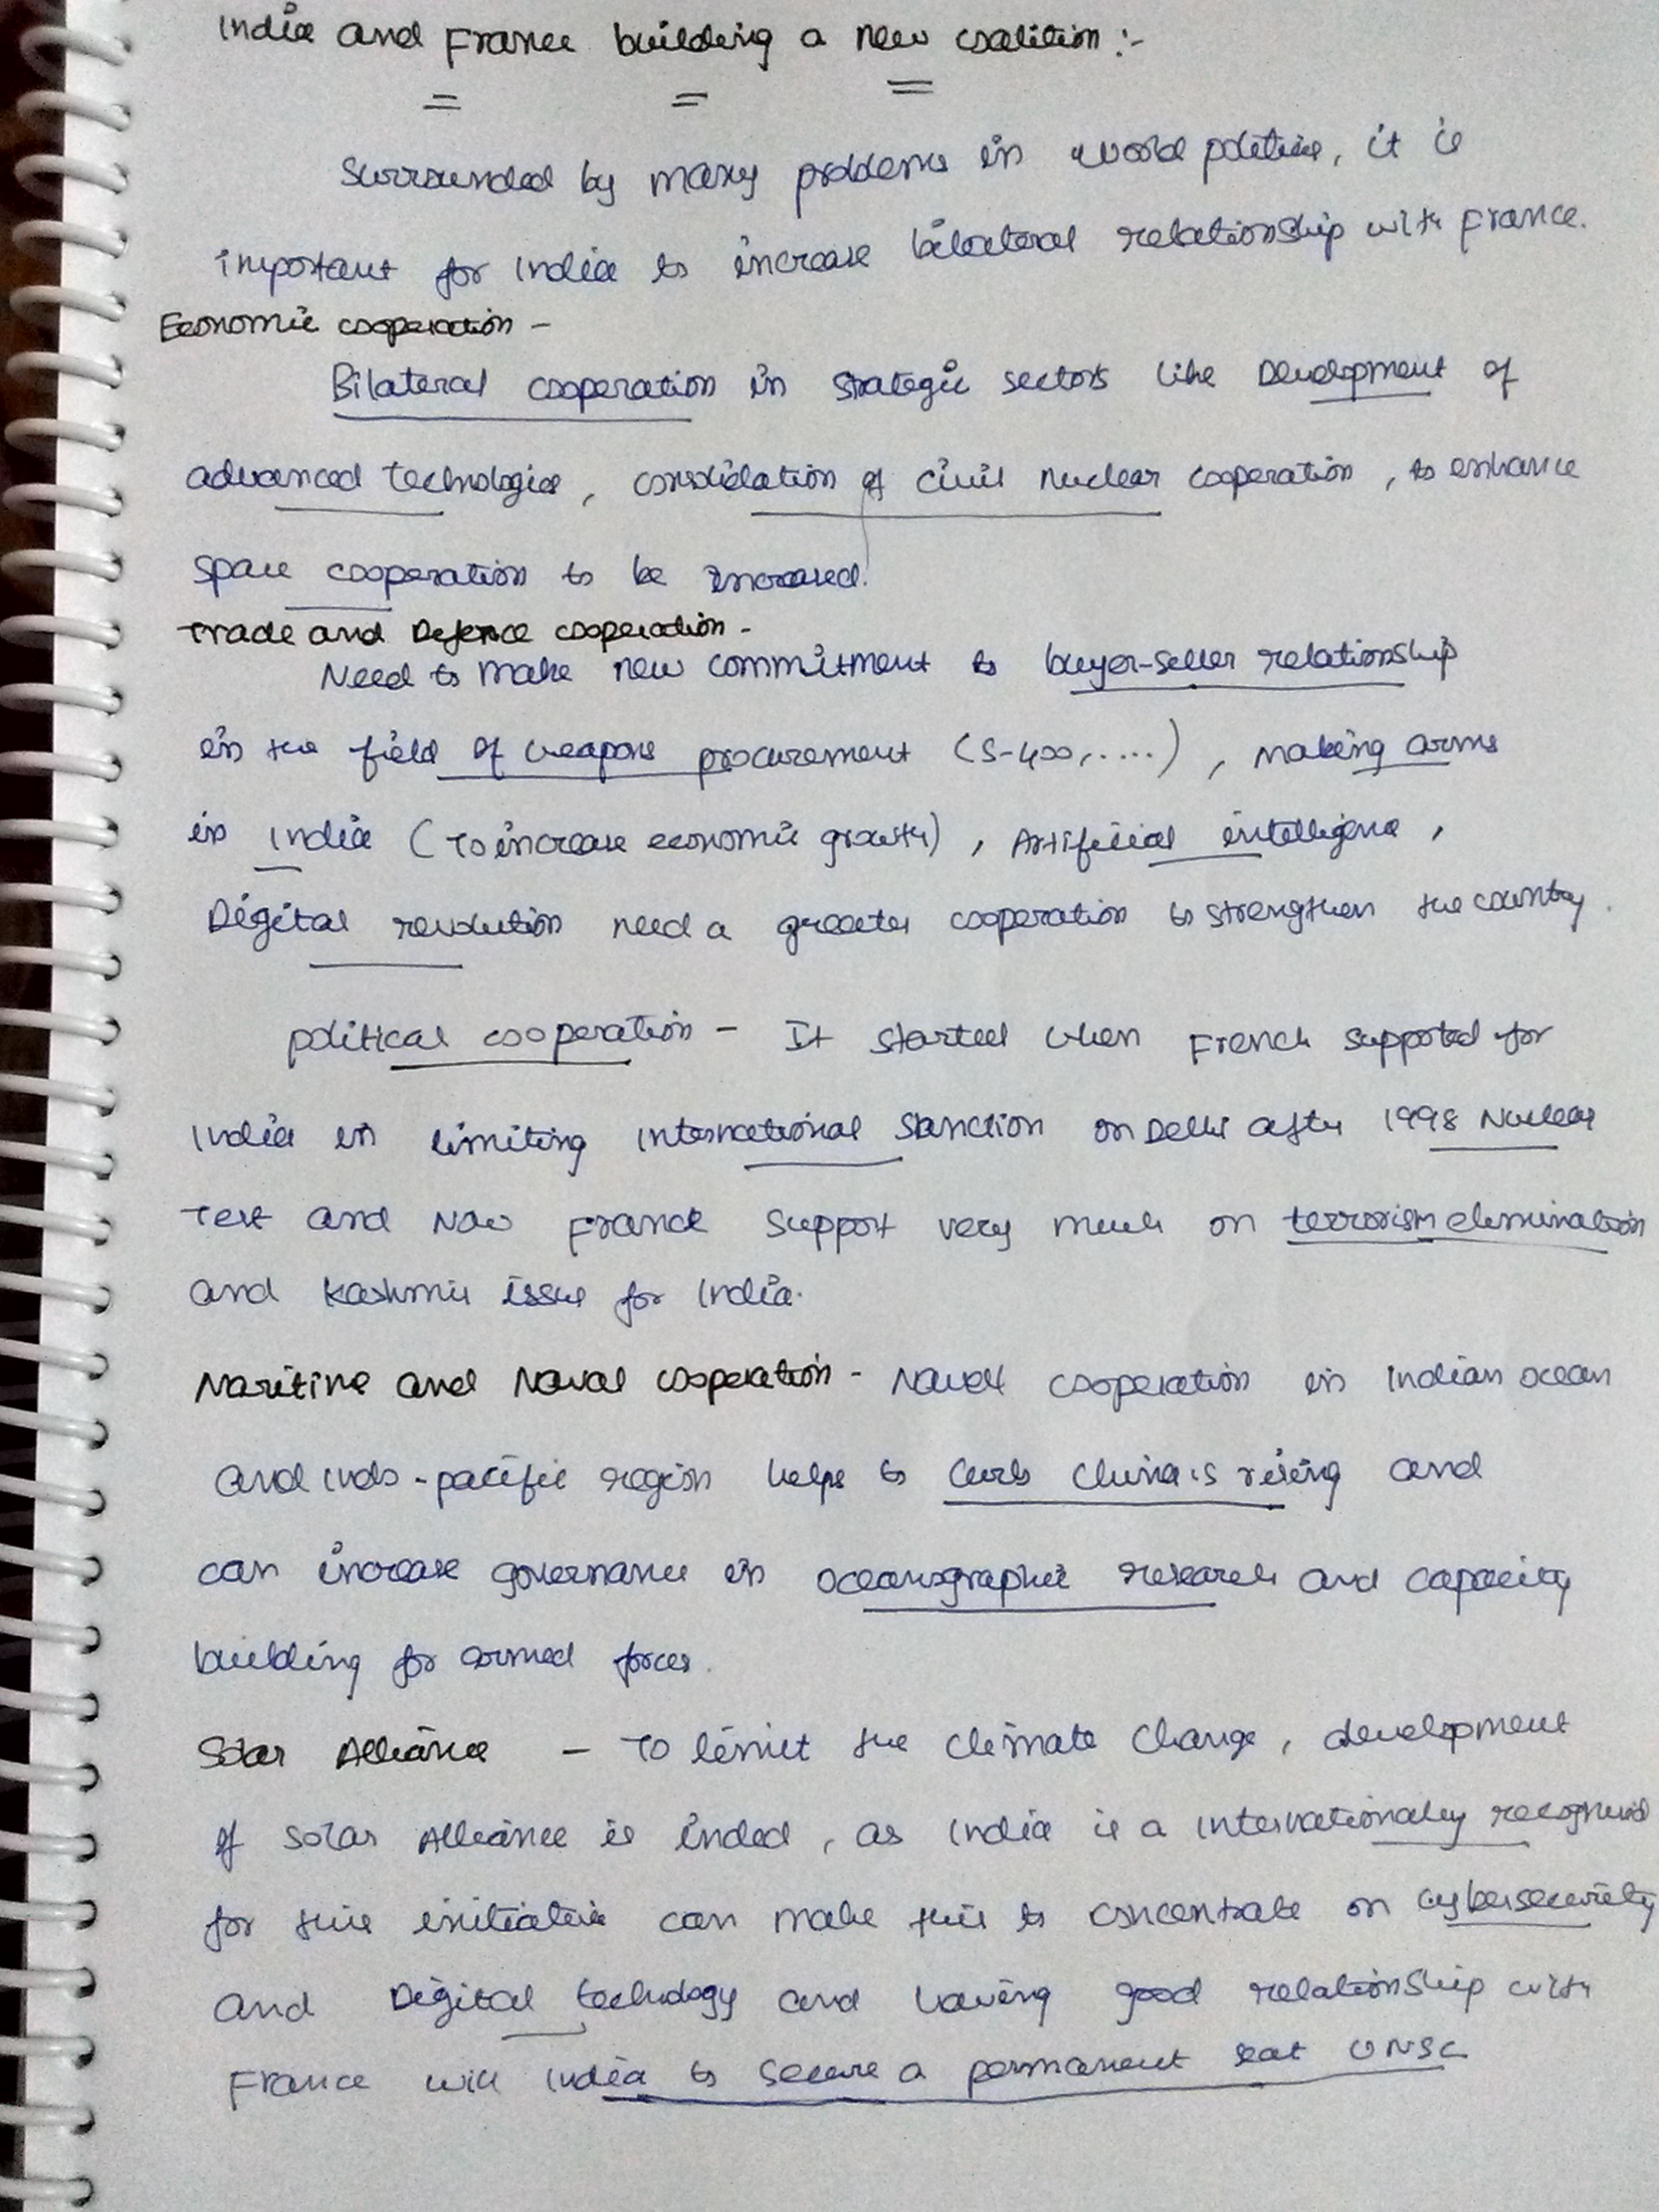 India and France building a new coalition :-
Surrounded by many problems in world politics, it is
important for India to increase bilateral relationship with France.
Economic cooperation -
Bilateral cooperation in strategic sectors like Development of
advanced technologies, consolidation of civil nuclear cooperation, to enhance
space cooperation to be increased.
Trade and Defence cooperation -
Need to make new commitment to buyer-seller relationship
in the field of weapons procurement (S-400, .....), making arms
in India (To increase economic growth), Artificial intelligence,
Digital revolution need a greater cooperation to strengthen the country.
Political cooperation - It started when French supported for
India in limiting International Sanction on Delhi after 1998 Nuclear
Test and Now France support very much on terrorism elimination
and Kashmir issue for India.
Maritime and Naval cooperation - Naval cooperation in Indian ocean
and indo-pacific region helps to curb China's rising and
can increase governance in oceanographic research and capacity
building for armed forces.
Solar Alliance - To limit the climate change, development
of solar Alliance is inded, as India is a internationally recognised
for this initiative can make this to concentrate on cybersecurity
and Digital techology and having good relationship with
France will India to secure a permanent seat UNSC